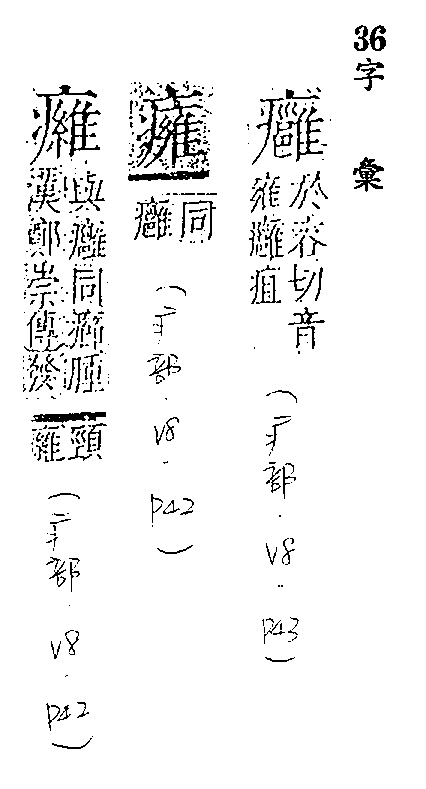 36字 彙
癰 於容切音
雍癰疽
(疒部.V8.P43)
癕
同
癰
(疒部.V8.P42)
與癰同瘤腫
漢鄭崇傳發
頸
癰
(疒部.V8.P42)